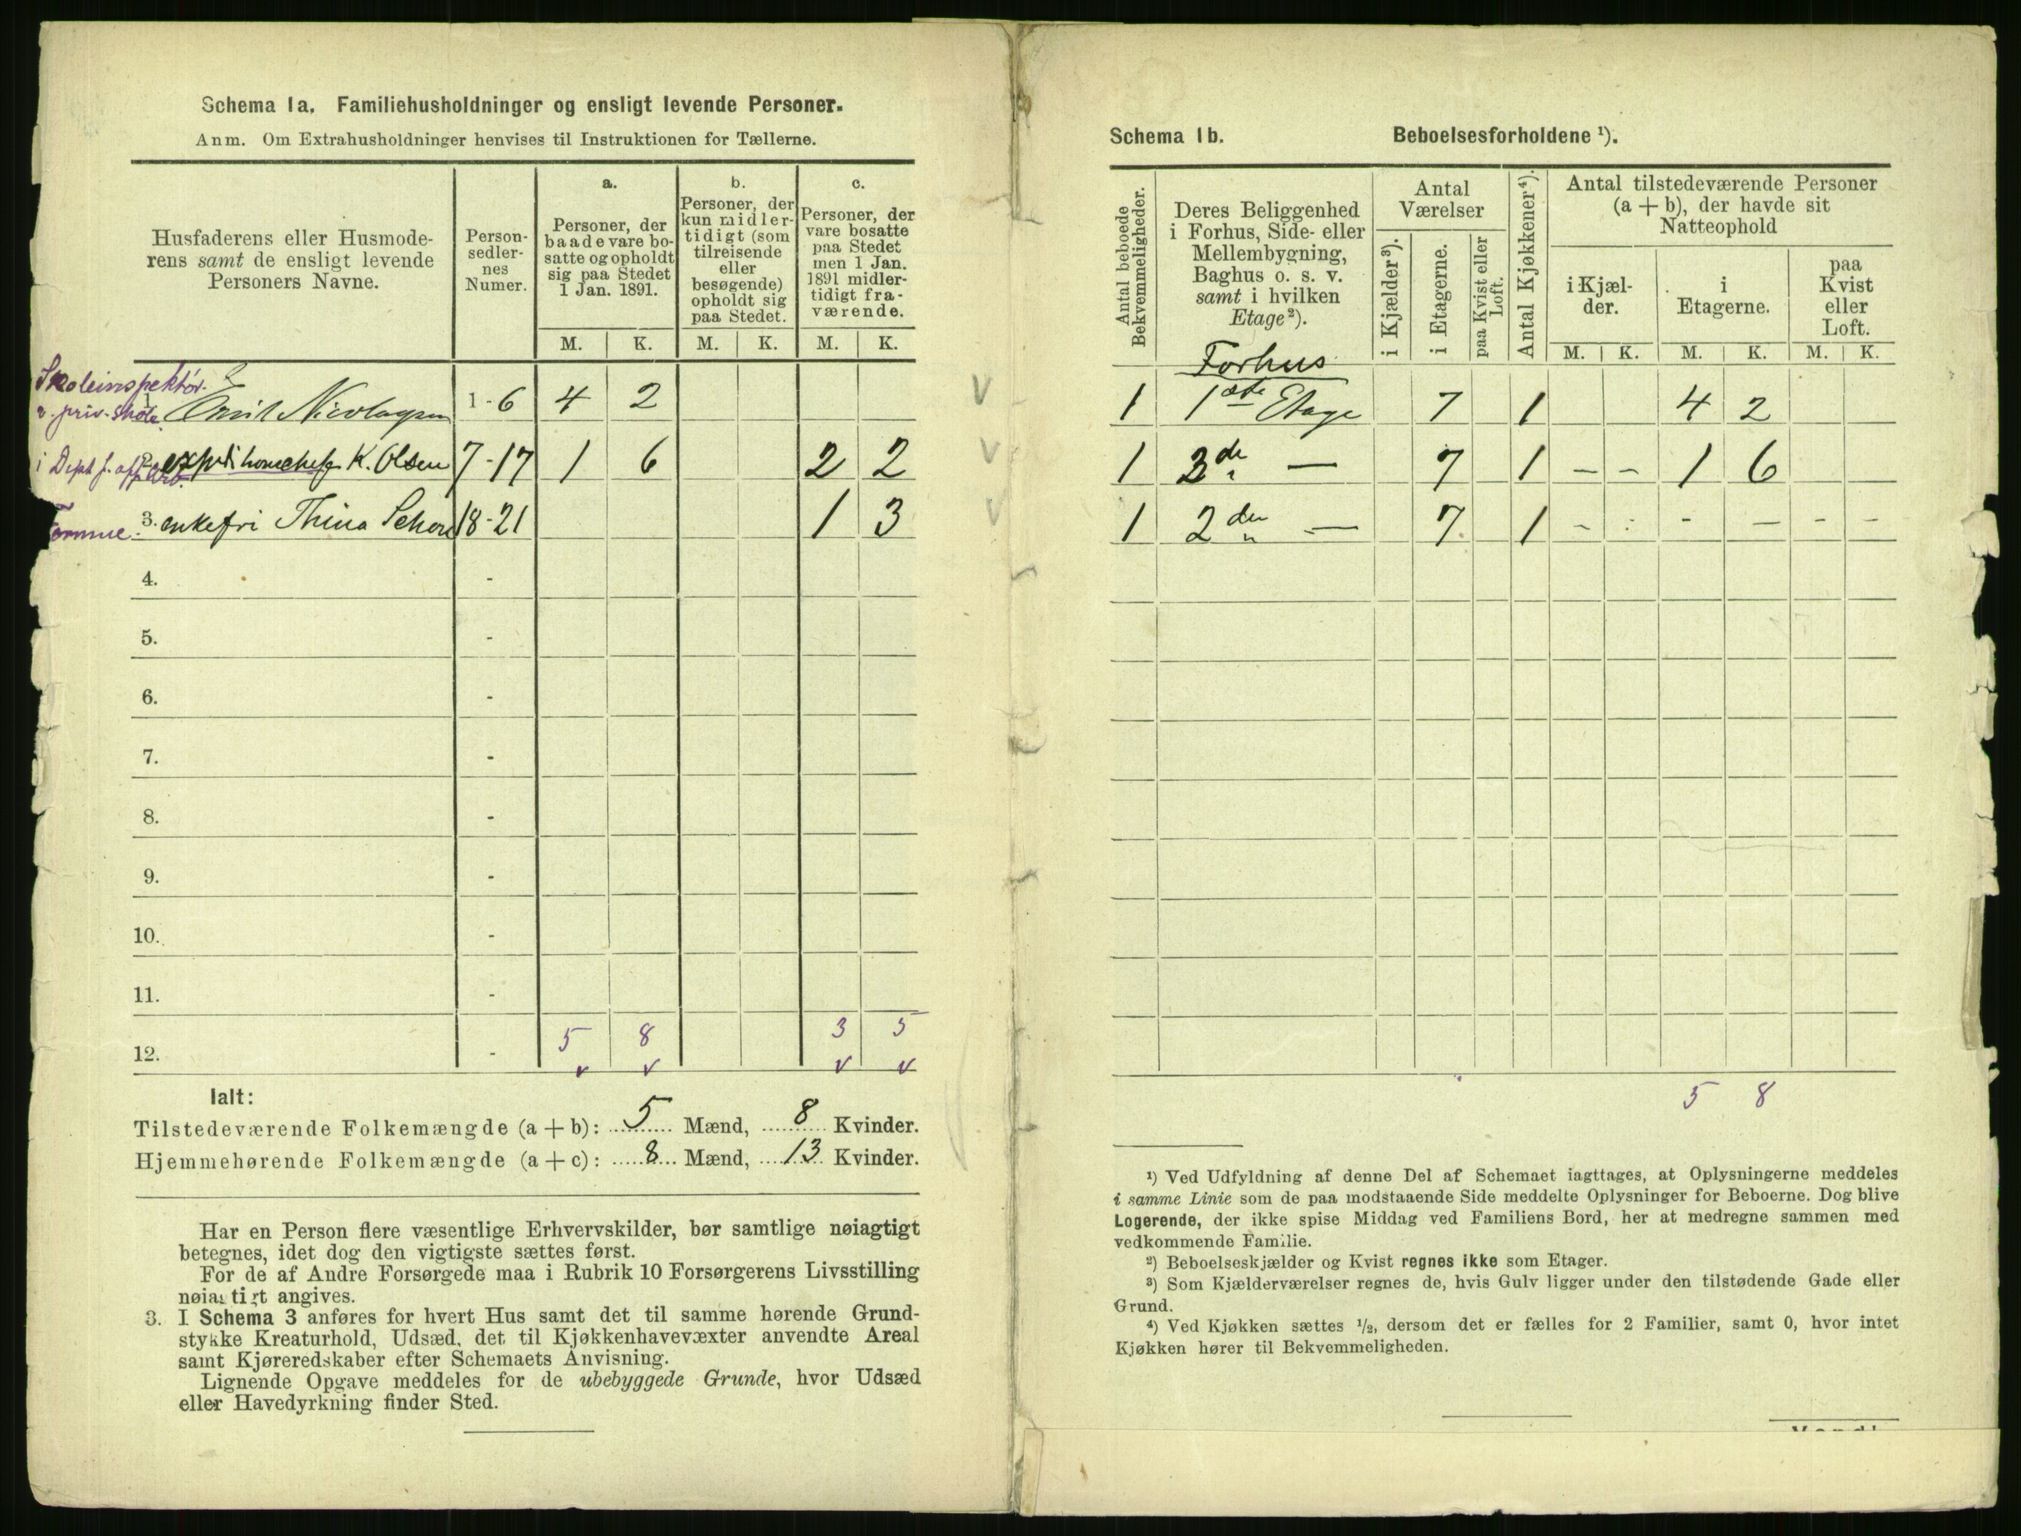 Schema 1a. Familiehusholdninger og ensligt levende Personer.
Anm. Om Extrahusholdninger henvises til Instruktionen for Tællerne.
Husfaderens eller Husmode-
rens samt de ensligt levende
Personers Navne.
Person-
sedler-
nes
Numer.
a.
Personer, der
baade vare bo-
satte og opholdt
sig paa Stedet
1 Jan. 1891.
b.
Personer, der
kun midler-
tidigt (som
tilreisende
eller
besøgende)
opholdt sig
paa Stedet.
c.
Personer, der
vare bosatte
paa Stedet
men 1 Jan.
1891 midler-
tidigt fra-
værende.
M. K. M. K. M. K.
Skoleinspektör
v. priv. skole.
1. Emil Nicolaysen 1-6 4 2
i Dept f. off. Arb.
2. K. Olsen 7-17 1 6 2 2
3. enkefri Thina 18-21 1 3
4. -
5. -
6. -
7. -
8. -
9. -
10. -
11. -
5 8 3 5
12. - v v v v
Ialt:
Tilstedeværende Folkemængde (a + b): 5 Mænd, 8 Kvinder.
Hjemmehørende Folkemængde (a + c): 8 Mænd, 13 Kvinder.
Har en Person flere væsentlige Erhvervskilder, bør samtlige nøiagtigt
betegnes, idet dog den vigtigste sættes først.
For de af Andre Forsørgede maa i Rubrik 10 Forsørgerens Livsstilling
nøiagtigt angives.
3. I Schema 3 anføres for hvert Hus samt det til samme hørende Grund-
stykke Kreaturhold, Udsæd, det til Kjøkkenhavevæxter anvendte Areal
samt Kjøreredskaber efter Schemaets Anvisning.
Lignende Opgave meddeles for de ubebyggede Grunde, hvor Udsæd
eller Havedyrkning finder Sted.
Schema 1b. Beboelsesforholdene ¹).
Antal beboede
Bekvemmeligheder.
Deres Beliggenhed
i Forhus, Side- eller
Mellembygning,
Baghus o. s. v.
samt i hvilken
Etage²).
Antal
Værelser
i Kjælder³).
i Etagerne.
paa Kvist eller
Loft.
Antal Kjøkkener⁴).
Antal tilstedeværende Personer
(a + b), der havde sit
Natteophold
i Kjæl-
der.
i
Etagerne.
paa
Kvist
eller
Loft.
M. K. M. K. M. K.
Forhus
1 1ste Etage 7 1 4 2
1 3de " — 7 1 - - 1 6
1 2den " — 7 1 - - - - - -
5 8
¹) Ved Udfyldning af denne Del af Schemaet iagttages, at Oplysningerne meddeles
i samme Linie som de paa modstaaende Side meddelte Oplysninger for Beboerne. Dog blive
Logerende, der ikke spise Middag ved Familiens Bord, her at medregne sammen med
vedkommende Familie.
²) Beboelseskjælder og Kvist regnes ikke som Etager.
³) Som Kjælderværelser regnes de, hvis Gulv ligger under den tilstødende Gade eller
Grund.
⁴) Ved Kjøkken sættes ½, dersom det er fælles for 2 Familier, samt 0, hvor intet
Kjøkken hører til Bekvemmeligheden.